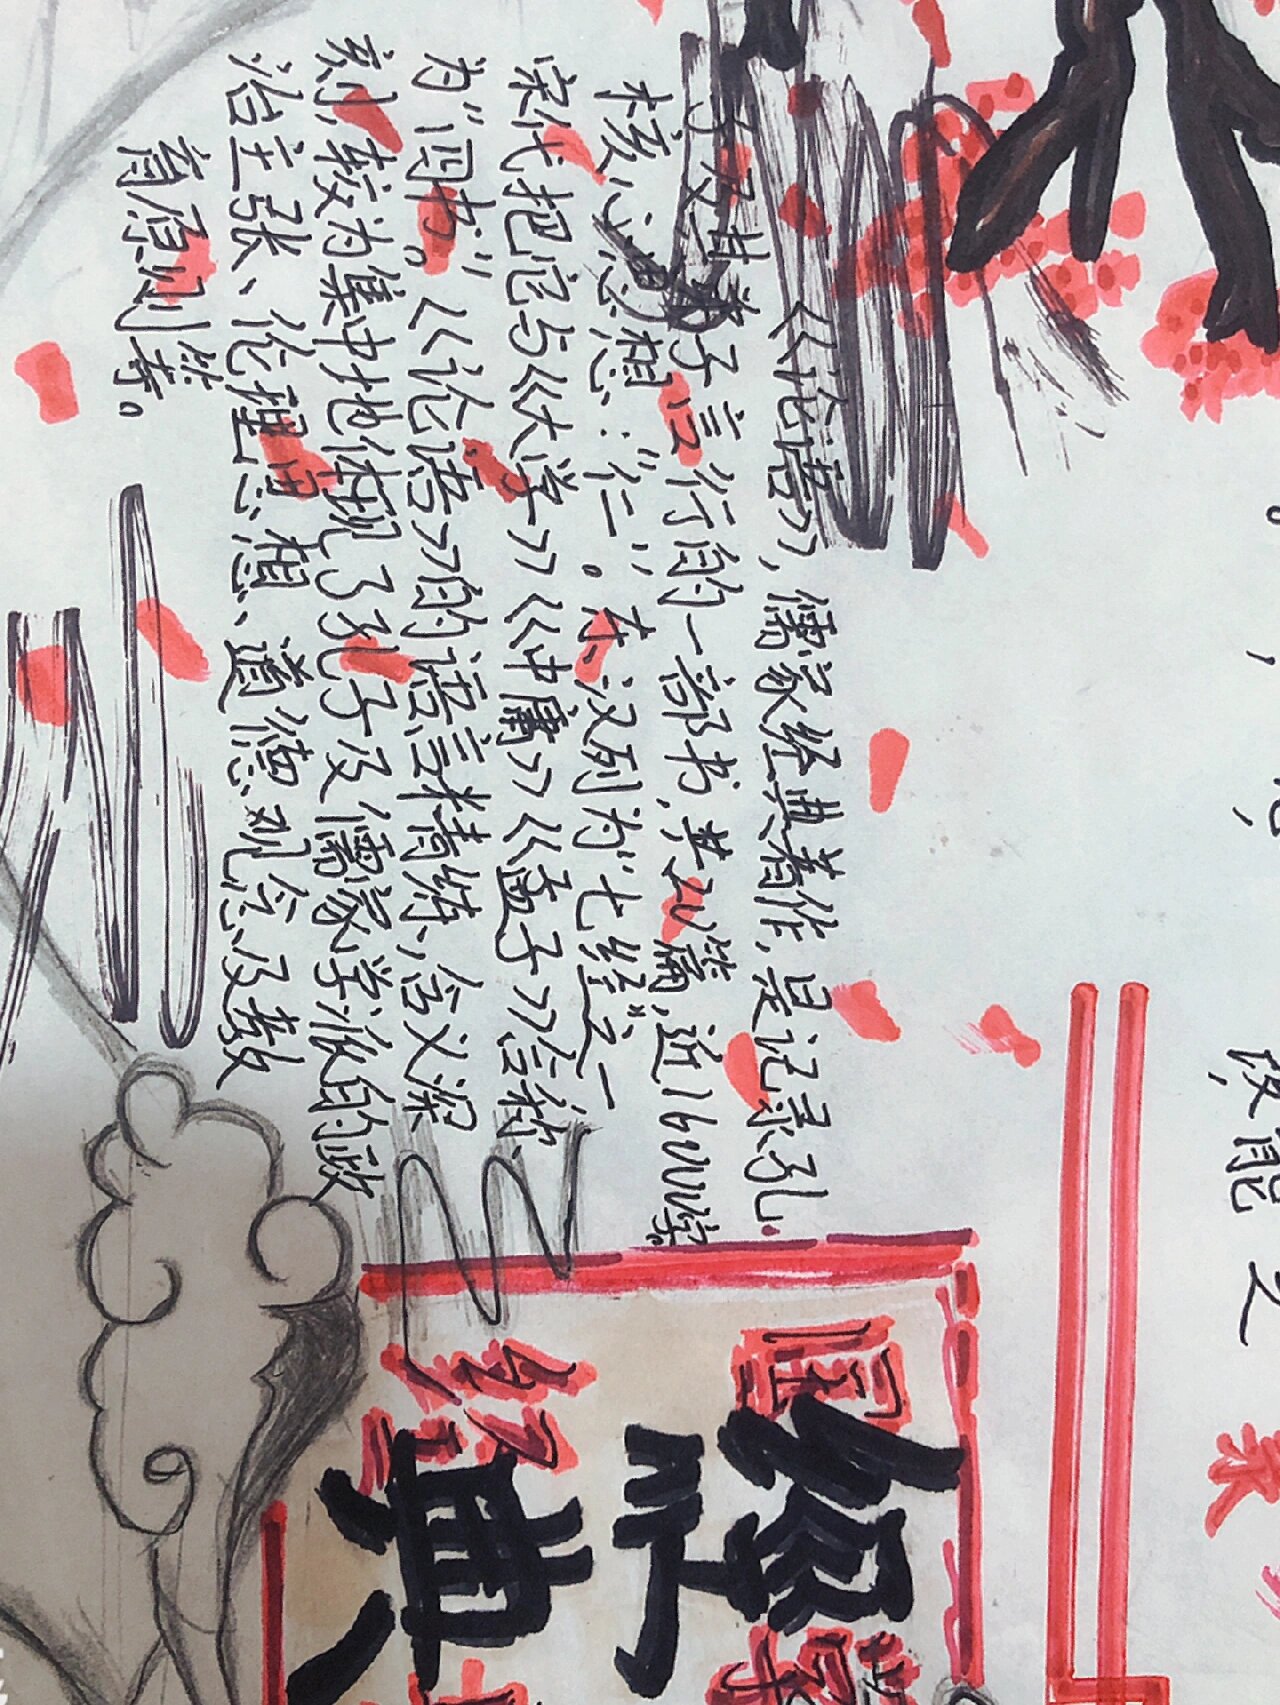 《论语》，儒家经典着作，是记录孔
子及其弟子言行的一部书，共20篇，近16000字。
核心思想：“仁”。东汉列为“七经”之一
宋代把它与《大学》《中庸》《孟子》合称
为“四书”。《论语》的语言精练、含义深
刻，较为集中地体现了孔子及儒家学派的政
治主张、伦理思想、道德观念及教
育原则等。
经
典
改能之